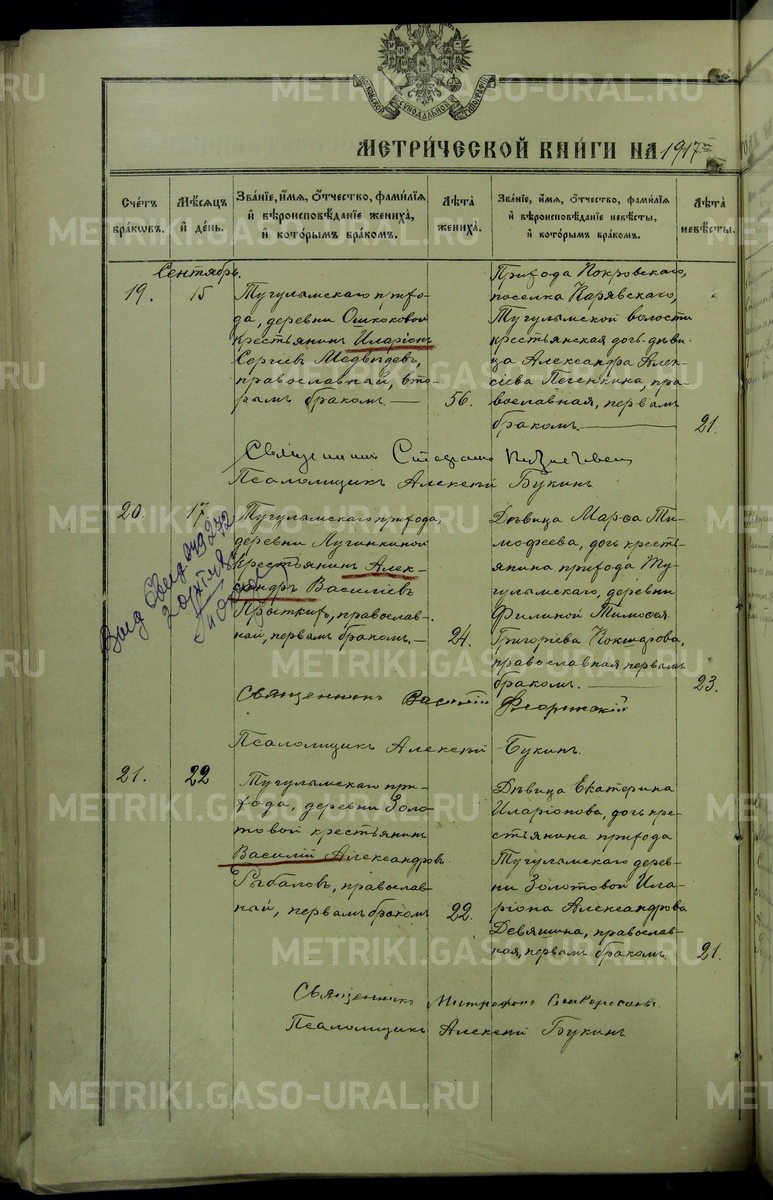 МОСКОВСКОЙ СѴНОДАЛЬНОЙ ТИПОГРАФІИ
МЕТРИ́ЧЕСКОЙ КНИ́ГИ НА 1917й
Счéтъ бра́кѡвъ.
Мѣ́сяцъ и҆ де́нь.
Зва́нїе, и҆́мя, ѻ҆́тчество, фами́лїя
и҆ вѣроисповѣ́данїе жениха̀,
и҆ кото́рымъ бра́комъ.
Лѣ́та жениха̀.
Зва́нїе, и҆́мя, ѻ҆́тчество, фами́лїя
и҆ вѣроисповѣ́данїе невѣ́сты,
и҆ кото́рымъ бра́комъ.
Лѣ́та невѣ́сты.
Сентябрь.
19.
15
Тугулымскаго прихо-
да, деревни Ошкоковой
крестьянинъ Иларіонъ
Сергіевъ Медвѣдевъ,
православный, вто-
рымъ бракомъ. —
56.
Прихода Покровскаго,
поселка Карявскаго,
Тугулымской волости
крестьянская дочь дѣви-
ца Александра Алек-
сіева Печенкина, пра-
вославная, первымъ
бракомъ. —
21.
Священникъ
Псаломщикъ Алексѣй Букинъ
20.
17
Тугулымскаго прихода,
деревни Лучинкиной
крестьянинъ Алек-
сандръ Василіевъ
Прыткихъ, православ-
ный, первымъ бракомъ. —
24.
Дѣвица Марѳа Ти-
моѳеева, дочь кресть-
янина прихода Ту-
гулымскаго, деревни
Филиной Тимоѳея
Григорьева Кокшарова,
православная первымъ
бракомъ. —
23.
Выд Свид
Священникъ Василій Флоринскій
Псаломщикъ Алексѣй Букинъ
21.
22
Тугулымскаго при-
хода, деревни Золо-
товой крестьянинъ
Василій Александровъ
Рыбаловъ, православ-
ный, первымъ бракомъ
22.
Дѣвица Екатерина
Иларіонова, дочь кре-
стьянина прихода
Тугулымскаго дерев-
ни Золотовой Ила-
ріона Александрова
Девяшина, православ-
ная, первымъ бракомъ.
21.
Священникъ Митрофанъ
Псаломщикъ Алексѣй Букинъ
METRIKI.GASO-URAL.RU